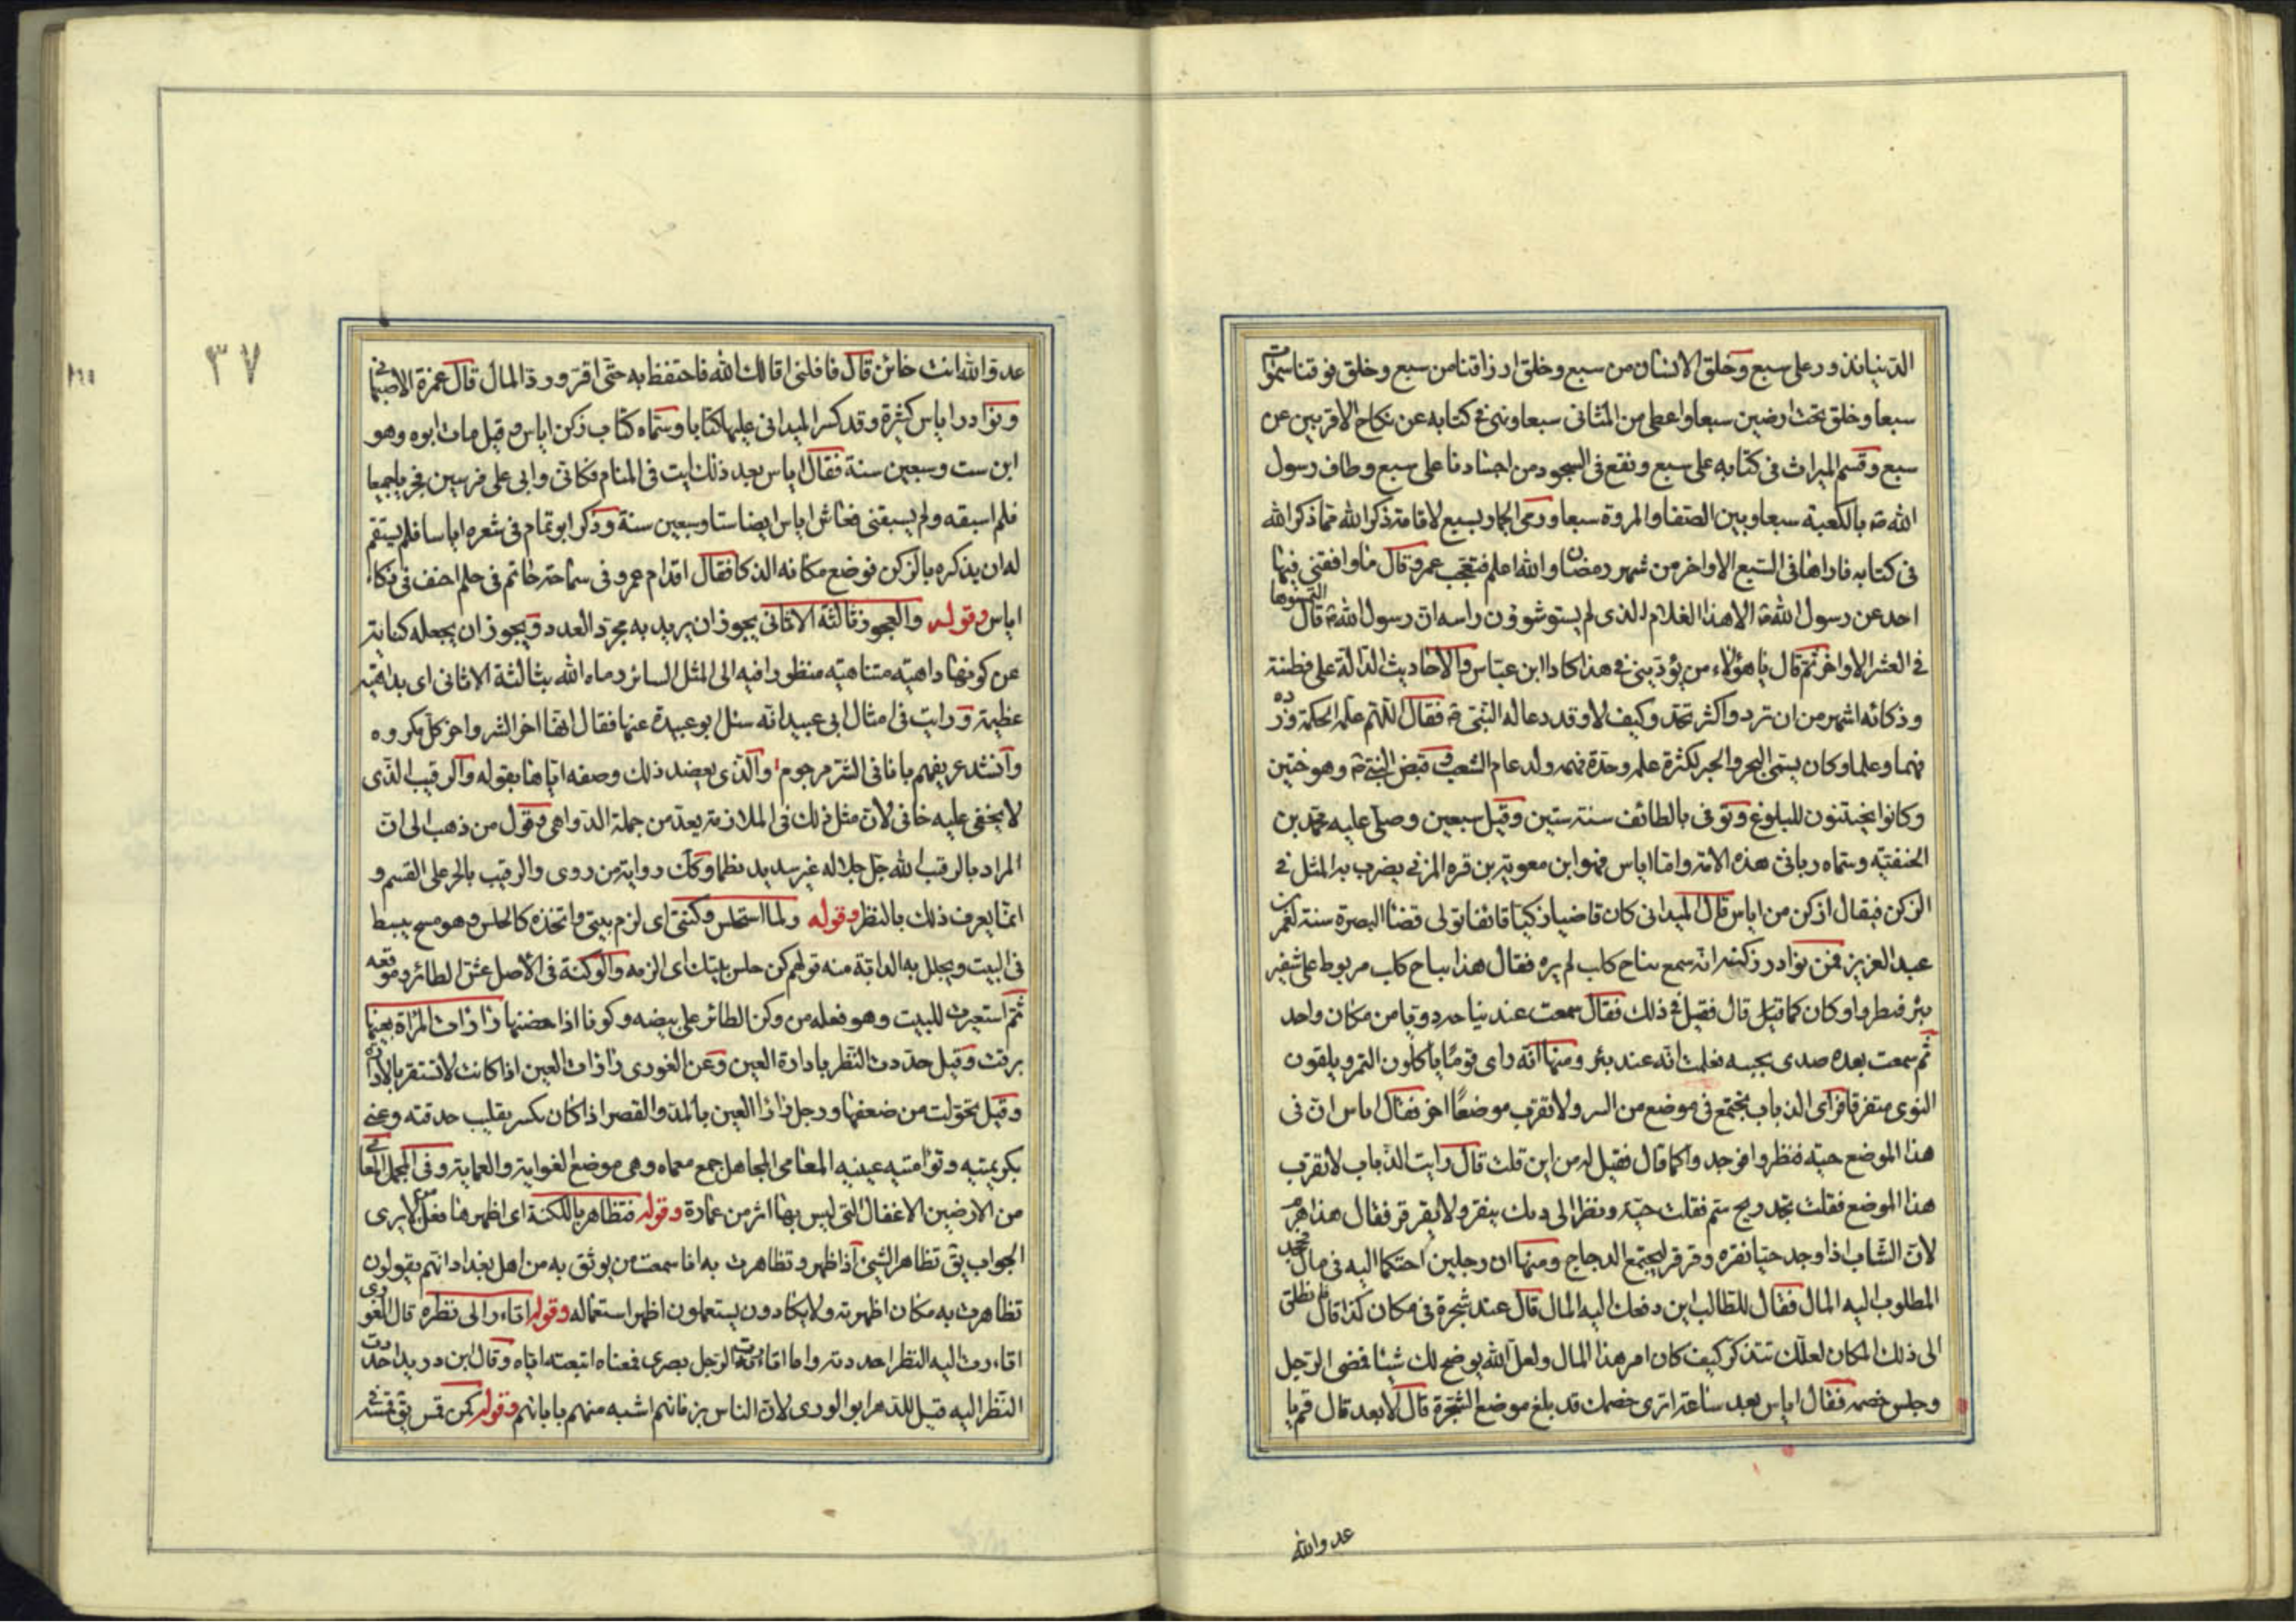 الدنيا تذور على سبع وخلق الانسان من سبع وخلق ارزاقنا من سبع وخلق فوقنا سموات
سبعا وخلق تحت ارضين سبعا واعطى من المثانى سبعا ونهى فى كتابه عن نكاح الاقربين عن
سبع وقسم الميراث فى كتابه على سبع ونقع فى السجود من اجسادنا على سبع وطاف رسول
الله ص بالكعبة سبعا وبين الصفا والمروة سبعا ورمى الجمار بسبع لاقامة ذكر الله مما ذكر الله
فى كتابه فاراها فى السبع الاواخر من شهر رمضان والله اعلم فتعجب عمر وقال ما وافقنى فيها
احد عن رسول الله ص الا هذا الغلام الذى لم يستو شوون راسه ان رسول الله ص قال التمسوها
فى العشر الاواخر ثم قال يا هؤلاء من يؤدينى فى هذا كاداء ابن عباس والاحاديث الدالة على فطنته
وذكائه اشهر من ان ترد واكثر تحد وكيف لا وقد دعا له النبى ص فقال اللهم علمه الحكمة وزده
فهما وعلما وكان يسمى البحر والحبر لكثرة علمه وحدة فهمه ولد عام الشعب وقبض النبى ص وهو ختين
وكانوا يختتنون للبلوغ وتوفى بالطائف سنة ستين وقيل سبعين وصلى عليه محمد بن
الحنفية وسماه ربانى هذه الامة واما اياس فهو ابن معوية بن قره المزنى يضرب به المثل فى
الزكن فيقال ازكن من اياس قال الميدانى كان قاضيا زكيا قائفا تولى قضا البصرة سنة لعمر بن
عبد العزيز فمن نوادر زكنه انه سمع نباح كلب لم يره فقال هذا نباح كلب مربوط على شفير
بئر فنظروا وكان كما قيل قال فقيل فى ذلك فقال سمعت عند نباحه دويا من مكان واحد
ثم سمعت بعده صدى يجيبه فعلمت انه عند بئر ومنها انه راى قوما ياكلون التمر ويلقون
النوى متفرقا فراى الذباب يجتمع فى موضع من السر ولا تقرب موضعا اخر فقال اياس ان فى
هذا الموضع حية فنظروا فوجدوا كما قال فقيل له من اين قلت قال رايت الذباب لا تقرب
هذا الموضع فقلت تجد ريح سم فقلت حية ونظر الى ديك ينقر ولا يقرقر فقال هذا هرم
لان الشاب اذا وجد حبا نقره وقرقر ليجتمع الدجاج ومنها ان رجلين احتكما اليه فى مال فجحد
المطلوب اليه المال فقال للطالب اين دفعت اليه المال قال عند شجرة فى مكان كذا قال فانطلق
الى ذلك المكان لعلك تتذكر كيف كان امر هذا المال ولعل الله يوضح لك شيئا فمضى الرجل
وجلس خصمه فقال اياس بعد ساعة اترى خصمك قد بلغ موضع الشجرة قال لا بعد قال قم يا
عدو الله
٣٧
عدو الله انت خائن قال فاقلنى اقالك الله فاحتفظ به حتى اقر ورد المال قال حمزة الاصبهانى
ونوادر اياس كثيرة وقد كسر الميدانى عليها كتابا وسماه كتاب زكن اياس وقيل مات ابوه وهو
ابن ست وسبعين سنة فقال اياس بعد ذلك رايت فى المنام فكانى وابى على فرسين فجريا جميعا
فلم اسبقه ولم يسبقنى فعاش اياس ايضا ستا وسبعين سنة وذكر ابو تمام فى شعره اياسا فلم يستقم
له ان يذكره بالزكن فوضع مكانه الذكا فقال اقدام عمرو فى سماحة حاتم فى حلم احنف فى ذكاء
اياس وقوله والعجوز ثالثة الاثافى يجوز ان يريد به مجرد العدد ويجوز ان يجعله كناية
عن كونها داهية متناهية منظورا فيه الى المثل السائر رماه الله بثالثة الاثافى اى بداهية
عظيمة ورايت فى امثال ابى عبيد انه سئل ابو عبيدة عنها فقال انها اخر الشر واخر كل مكروه
وانشد عريفهم باثافى الشر مرجوم والذى يعضد ذلك وصفه اياها بقوله والرقيب الذى
لا يخفى عليه خافى لان مثل ذلك فى الملازمة يعد من جملة الدواهى وقول من ذهب الى ان
المراد بالرقيب الله جل جلاله غير سديد نظما وكك رواية من روى والرقيب بالجر على القسم و
انما يعرف ذلك بالنظر وقوله ولما استحلس وكنتى اى لزم بيتى واتخذه كالحلس وهو مسح يبسط
فى البيت ويجلل به الدابة منه قولهم كن حلس بيتك اى الزمه والوكنة فى الاصل عش الطائر وموقعه
ثم استعيرت للبيت وهو فعله من وكن الطائر على بيضه وكونا اذا حضنها زارات المراة بعينها
برقت وقيل حددت النظر بادارة العين وعن الغورى زارات العين اذا كانت لا تستقر بالادارة
وقيل تحولت من ضعفها ورجل زارا العين بالمد والقصر اذا كان يكسر يقلب حدقته وعنى
بكريمتيه وتوامتيه عينيه المعامى المجاهل جمع معماه وهى موضع الغواية والعماية وفى المجمل المعامى
من الارضين الاغفال التى ليس بها اثر من عمارة وقوله فتظاهر باللكنة اى اظهرها فعل من لا يرى
الجواب يق تظاهر الشىء اذا ظهر وتظاهرت به انا سمعت من يوثق به من اهل بغداد انهم يقولون
تظاهرت به مكان اظهرته ولا يكادون يستعملون اظهر استعماله وقوله اتاءر الى نظره قال الغورى
اتاءرت اليه النظر احددته واما اتاءرته الرجل بصرى فمعناه اتبعته اياه وقال ابن دريد احددت
النظر اليه قيل للدهر ابو الورى لان الناس بزمانهم اشبه منهم بابائهم وقوله كمن قس يق قسه